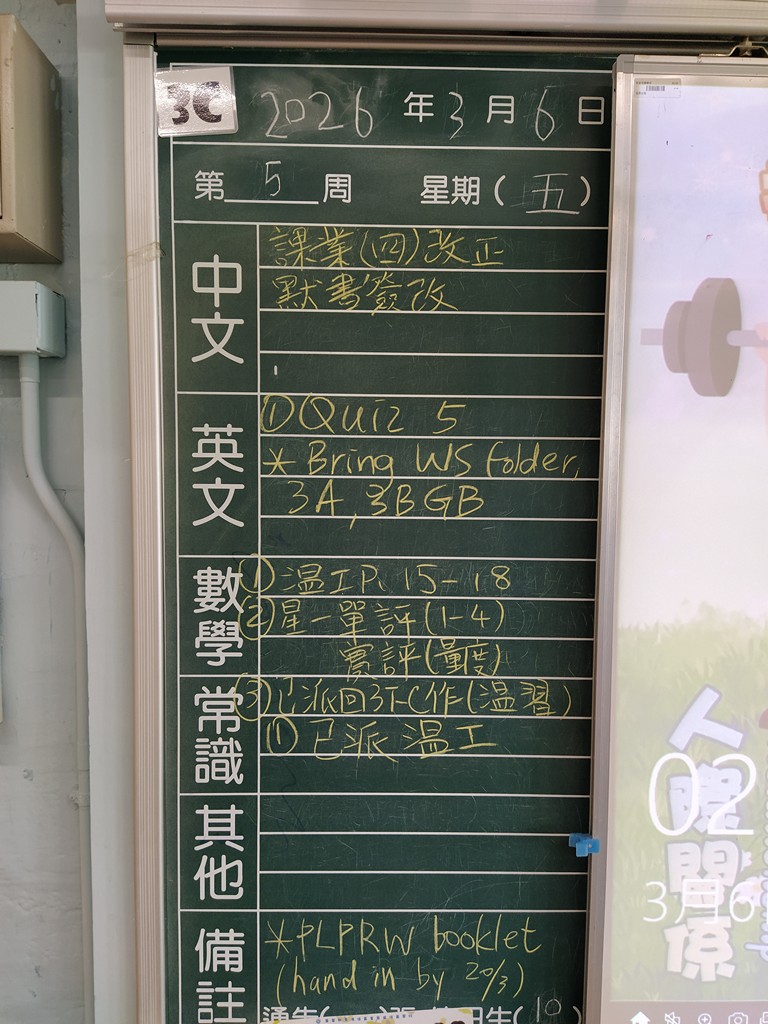 3C
2026年3月6日
第5周 星期(五)
中文
課業(四)改正
默書簽改
英文
① Quiz 5
* Bring WS folder,
3A, 3B GB
數學
① 温工P. 15-18
② 星一單評(1-4)
實評(量度)
③ 已派回3下C作(温習)
常識
① 已派温工
其他
備註
* PLPRW booklet
(hand in by 20/3)
(10)
人際關係
02
3月6